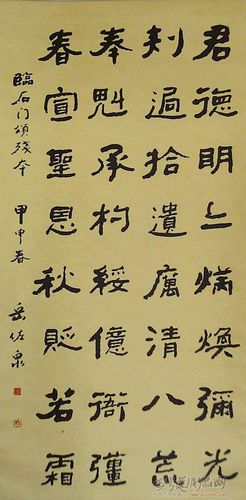 君德明〻炳煥彌光
刺過拾遺厲清八荒
奉魁承杓綏億衙彊
春宣聖恩秋貶若霜
臨石门頌殘本 甲申春 岳佐泉